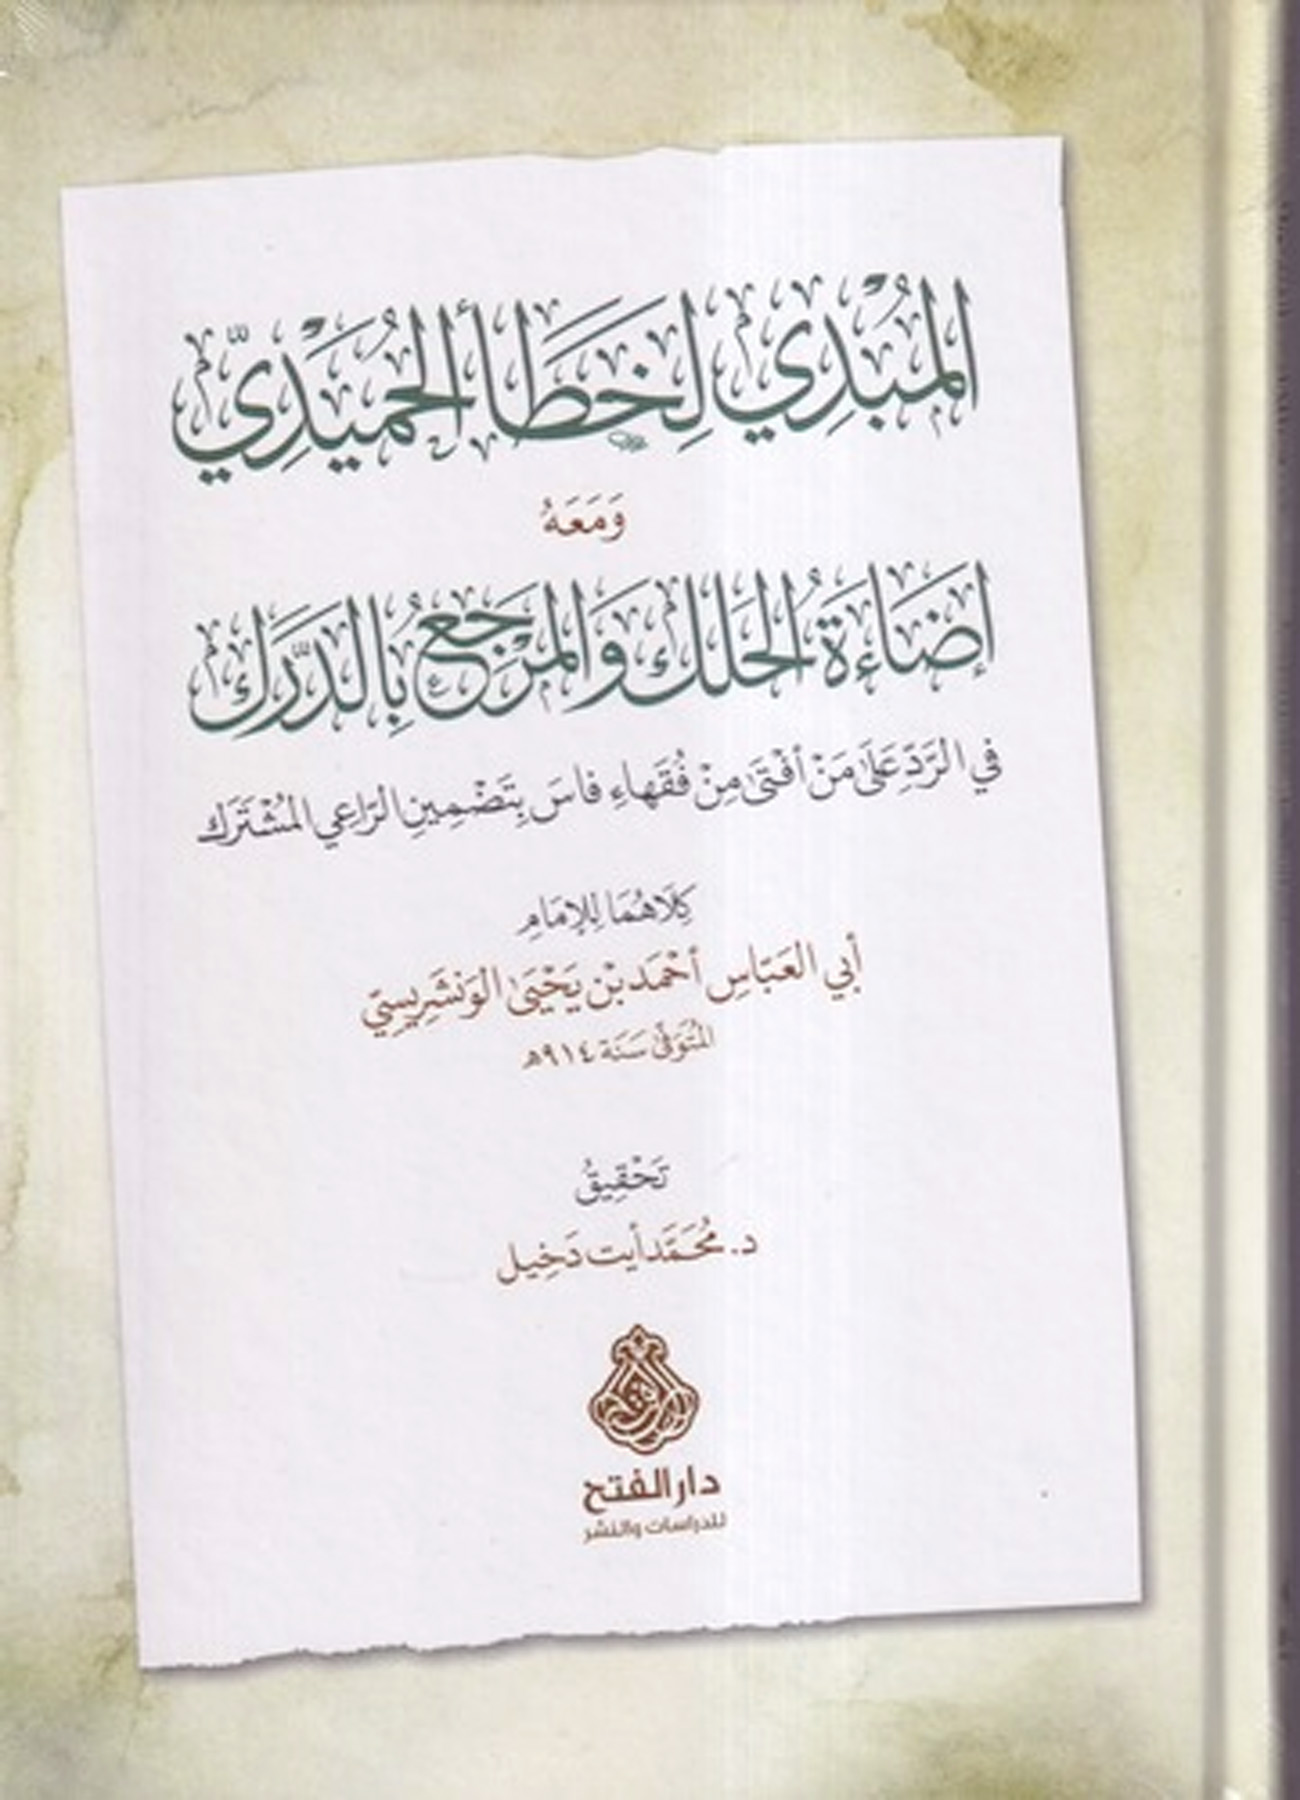 المُبْدِي لِخَطَأ الحُمَيْدِيّ
وَمَعَهُ
إضَاءَةُ الحَلَك وَالمَرْجَعُ بِالدَّرَك
في الرَّدِّ عَلَى مَنْ أفْتَى مِنْ فُقَهاءِ فاسَ بِتَضْمِينِ الرّاعِي المُشْتَرَك
كِلَاهُمَا لِلإمَامِ
أبي العَبّاسِ أحْمَد بْن يَحْيَى الوَنْشَرِيسِيّ
المُتَوَفَّى سَنَة ٩١٤هـ
تَحْقِيقُ
د. مُحَمَّد أيت دَخِيل
دار الفتح
للدراسات والنشر